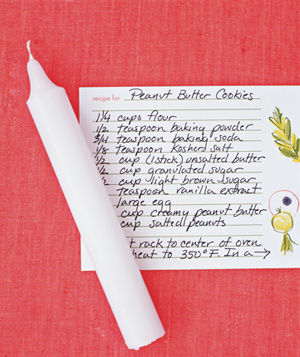 recipe for Peanut Butter Cookies
1 1/4 cups flour
1/2 teaspoon baking powder
3/4 teaspoon baking soda
1/8 teaspoon Kosher salt
1/2 cup (1 stick) unsalted butter
1/2 cup granulated sugar
1/2 cup light brown sugar
teaspoon vanilla extract
large egg
cup creamy peanut butter
cup salted peanuts
rack to center of oven
heat to 350°F. In a →